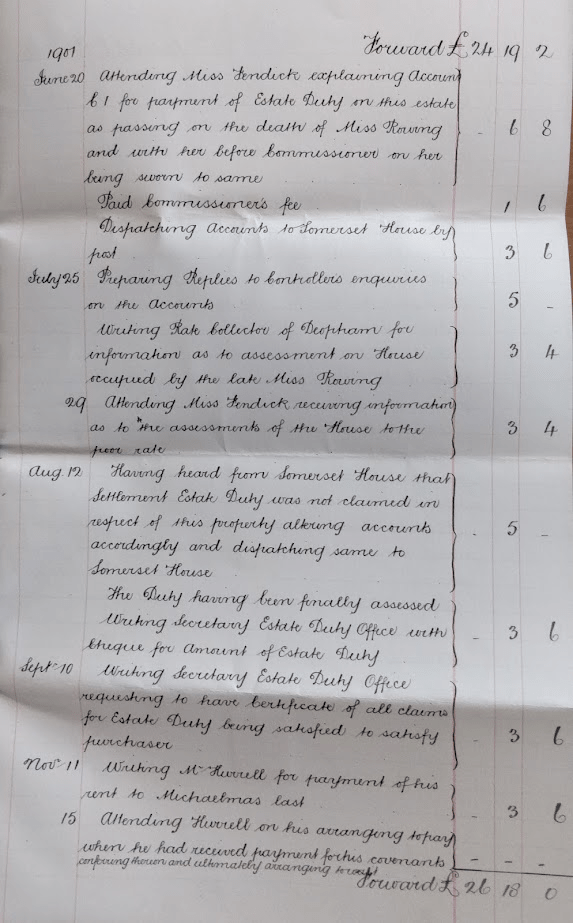 1901 Forward £ 24 19 2
June 20 Attending Miss Fendick explaining Account
C 1 for payment of Estate Duty on this estate
as passing on the death of Miss Rowing - 6 8
and with her before Commissioner on her
being sworn to same
Paid Commissioner's fee 1 6
Dispatching Accounts to Somerset House by
post 3 6
July 25 Preparing Replies to Controllers enquiries
on the Accounts 5 -
Writing Rate Collector of Deopham for
information as to assessment on House 3 4
occupied by the late Miss Rowing
29 Attending Miss Fendick receiving information
as to the assessments of the House to the 3 4
poor rate
Aug. 12 Having heard from Somerset House that
Settlement Estate Duty was not claimed in
respect of this property altering accounts - 5 -
accordingly and dispatching same to
Somerset House
The Duty having been finally assessed
Writing Secretary Estate Duty Office with - 3 6
cheque for Amount of Estate Duty
Sept. 10 Writing Secretary Estate Duty Office
requesting to have Certificate of all claims
for Estate Duty being satisfied to satisfy - 3 6
purchaser
Nov. 11 Writing Mr Hurrell for payment of his
rent to Michaelmas last - 3 6
15 Attending Hurrell on his arranging to pay
when he had received payment for his covenants - - -
conferring thereon and ultimately arranging to
Forward £ 26 18 0